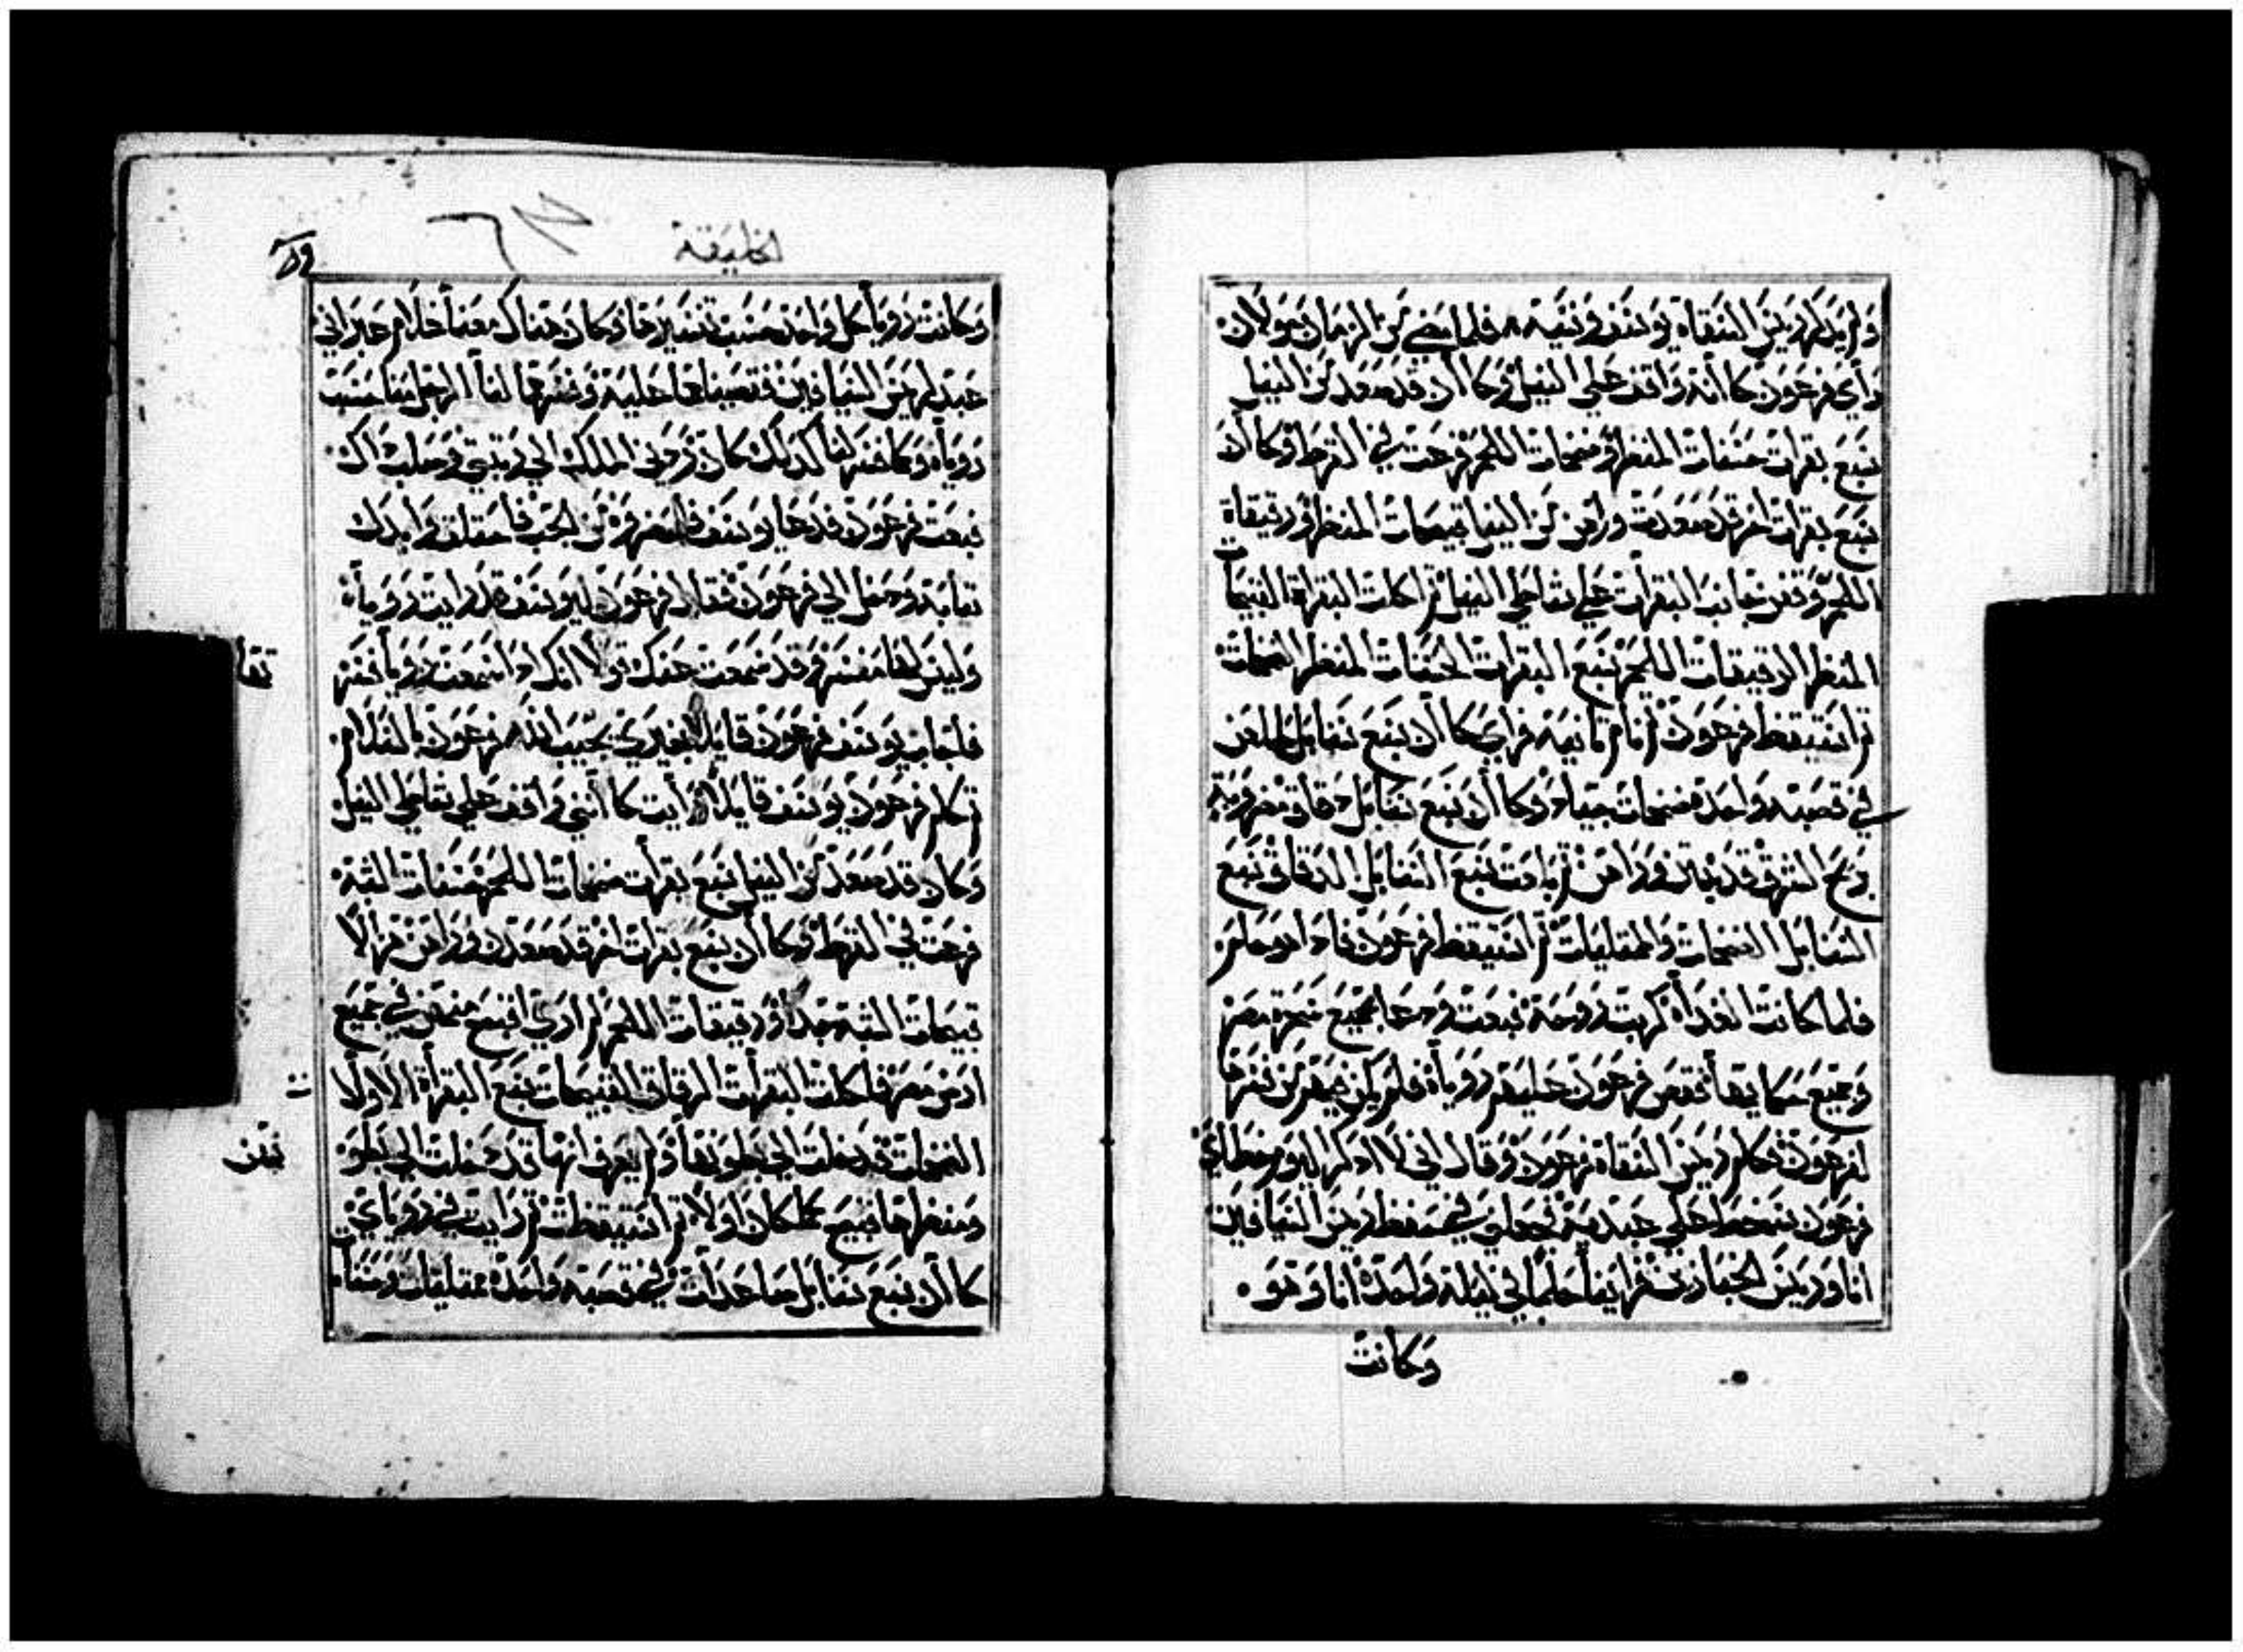 ولم يذكر ريس السقاة يوسف ونسيه فلما مضي من الزمان حولان
رأي فرعون كاانه واقف علي النيل وكاان قد صعد من النيل
سبع بقرات حسنات المنظر وضخمات اللحم فرعت في القرط وكاان
سبع بقرات اخر قد صعدت وراهن من النيل قبيحات المنظر ورقيقاة
اللحم وقفن بجانب البقرات علي شاطي النيل ثم اكلت البقراة القبيحات
المنظر الرقيقات اللحم سبع البقرات الحسنات المنظر الضخمات
ثم استيقظ فرعون ثم نام ثانيه فراي كاان سبع سنابل طلعن
في قصبه واحده ضخمات جياد وكاان سبع سنابل دقاق مضروبة
بريح الشرق قد نبتن وراهن ثم بلعت سبع السنابل الدقاق سبع
السنابل الضخمات والممتليات ثم استيقظ فرعون فاذا هو حلم
فلما كانت الغداه كربت روحه فبعث ودعا بجميع سحرة مصر
وجميع حكمايها فقص فرعون عليهم روياه فلم يكن فيهم من فسرها
لفرعون فكلم ريس السقاة فرعون وقال اني لا اذكر اليوم خطاي
فرعون سخط علي عبديه فجعلني في محفظ ريس السيافين
انا وريس الخبازين فراينا حلما في ليلة واحدة انا وهو
وكانت
الخليقة
وكانت رويا كل واحد حسب تفسيرها وكان هناك معنا غلام عبراني
عبد لريس السيافين فقصينا عليه وفسرها لنا الرجل منا حسب
روياه وكما فسر لنا كذلك كان فردني الملك الي رتبتي وصلب ذاك
فبعث فرعون فدعا يوسف فاحضروه من الحبس فاحتلق وابدل
ثيابه ودخل الي فرعون فقال فرعون ليوسف قد رايت روياه
وليس لها مفسر وقد سمعت عنك قولا انك اذا سمعت رويا تفسر
فاجاب يوسف فرعون قايلا بغيري يجيب الله فرعون بالسلام
ثم كلم فرعون يوسف قايلا رايت كاانني واقف علي شاطي النيل
وكان قد صعد من النيل سبع بقرات ضخمات اللحم حسنات الشبه
فرعت في القرط وكاان سبع بقرات اخر قد صعدن وراهن هزالا
قبيحات الشبه جدا ورقيقات اللحم لم اري اقبح منهن في جميع
ارض مصر فاكلت البقرات الرقاق القبيحات سبع البقراة الاولا
الضخمات قد خلت الي بطونها ولم يعرف انها قد دخلت الي بطو
ومنظرها قبيح كما كان اولا ثم استيقظت ثم رايت في روياي
كاان سبع سنابل صاعدات في قصبه واحده ممتليات وحسنا